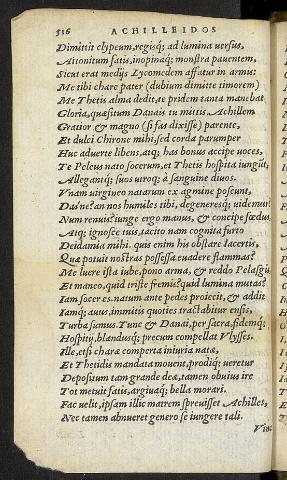 516 ACHILLEIDOS
Dimittit clypeum, regisq; ad lumina uersus,
Attonitum fatis, inopinaq; monstra pauentem,
Sicut erat medijs Lycomedem affatur in armis:
Me tibi chare pater (dubium dimitte timorem)
Me Thetis alma dedit, te pridem tanta manebat
Gloria, quæsitum Danais tu mittis Achillem
Gratior & magno (si fas dixisse) parente,
Et dulci Chirone mihi, sed corda parumper
Huc aduerte libens, atq; has bonus accipe uoces,
Te Peleus nato socerum, et Thetis hospita iungũt,
Allegantq; suos utroq; à sanguine diuos.
Vnam uirgineo natarum ex agmine poscunt,
Das ne? an nos humiles tibi, degeneresq; uidemur?
Num renuis? iunge ergo manus, & concipe fœdus,
Atq; ignosce tuis, tacito nam cognita furto
Deidamia mihi. quis enim his obstare lacertis,
Quæ potuit nostras possessa euadere flammas?
Me luere ista iube, pono arma, & reddo Pelasgis
Et maneo, quid triste fremis? quid lumina mutas?
Iam socer es. natum ante pedes proiecit, & addit
Iamq; auus, immitis quoties tractabitur ensis,
Turba sumus. Tunc & Danai, per sacra, fidemq;
Hospitij, blandusq; precum compellat Vlysses.
Ille, etsi charæ comperta iniuria natæ,
Et Thetidis mandata mouent, prodiq; ueretur
Depositum tam grande deæ, tamen obuius ire
Tot metuit fatis, argiuaq; bella morari.
Fac uelit, ipsam illic matrem spreuisset Achilles,
Nec tamen abnueret genero se iungere tali.